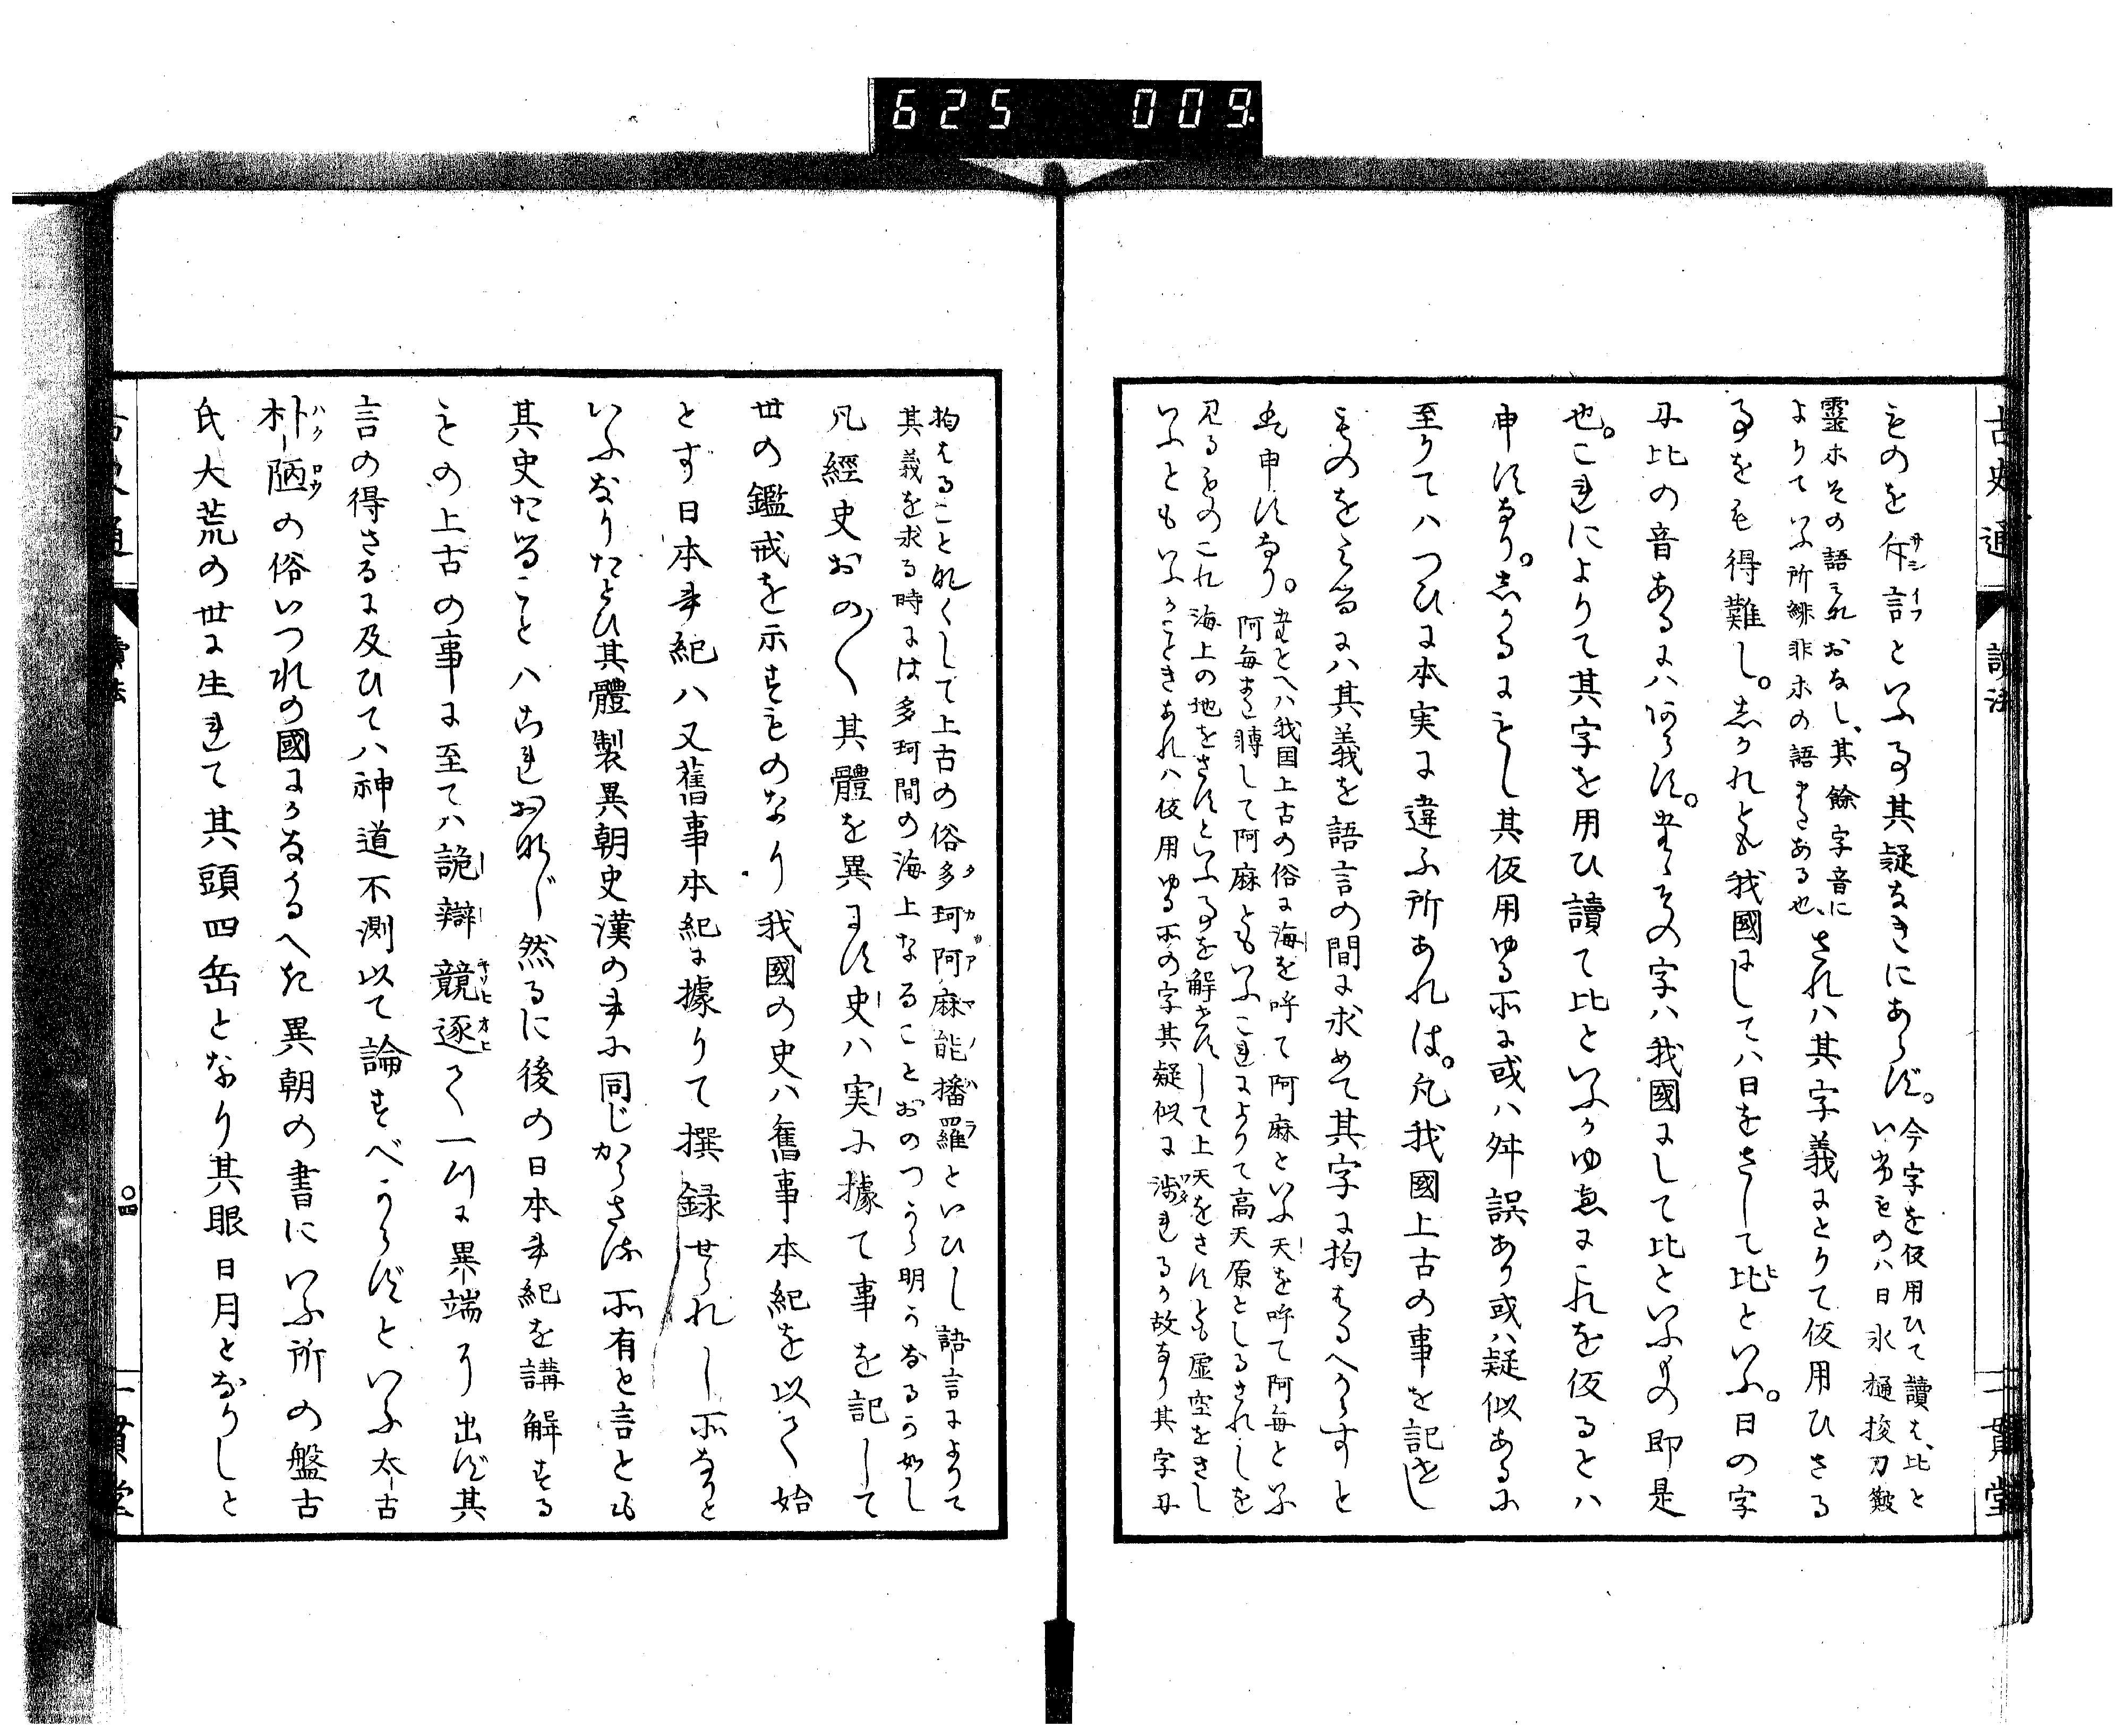 625 009
古史通
讀法
一貫堂
ものを斥言といふ事其疑なきにあらず。今字を仮用ひて讀は、比と
いふものハ日氷樋梭刀皺
靈ホその語これおなし、其餘字音に
よりていふ所緋非ホの語またある也、されハ其字義によりて仮用ひさる
事をも得難し。しかれとも我國にしてハ日をさして比といふ。日の字
に比の音あるにハあらす。たゝその字ハ我國にして比といふもの即是
也。これによりて其字を用ひ讀て比といふかゆゑにこれを仮るとハ
申すなり。しかるにもし其仮用ゆる所に或ハ舛誤あり或ハ疑似あるに
至りてハつひに本実に違ふ所あれは。凡我國上古の事を記せし
ものをみるにハ其義を語言の間に求めて其字に拘はるへからすと
ハ申すなり。たとへハ我国上古の俗に海を呼て阿麻といふ天を呼て阿毎といふ
阿毎また轉して阿麻ともいふこれによりて高天原としるされしを
見るものこれ海上の地をさすといふ事を解さすして上天をさすとも虚空をさし
いふともいふかこときあれハ仮用ゆる所の字其疑似に渉れるか故なり其字に
拘はることなくして上古の俗多珂阿麻能播羅といひし語言によりて
其義を求る時には多珂間の海上なることおのつから明かなるか如し
凡經史おの〱其體を異にす史ハ実に據て事を記して
世の鑑戒を示すものなり我國の史ハ舊事本紀を以て始
とす日本紀ハ又舊事本紀に據りて撰録せられし所なりと
いふなりたとひ其體製異朝史漢の書に同じからさる所有と言とも
其史たることハこれおなじ然るに後の日本紀を講解する
もの上古の事に至てハ詭辯競逐て一切に異端より出ず其
言の得さるに及ひてハ神道不測以て論すべからずといふ太古
朴陋の俗いつれの國にかなかるへき異朝の書にいふ所の盤古
氏大荒の世に生れて其頭四岳となり其眼日月となりしと
古史通
讀法
〇四
一貫堂